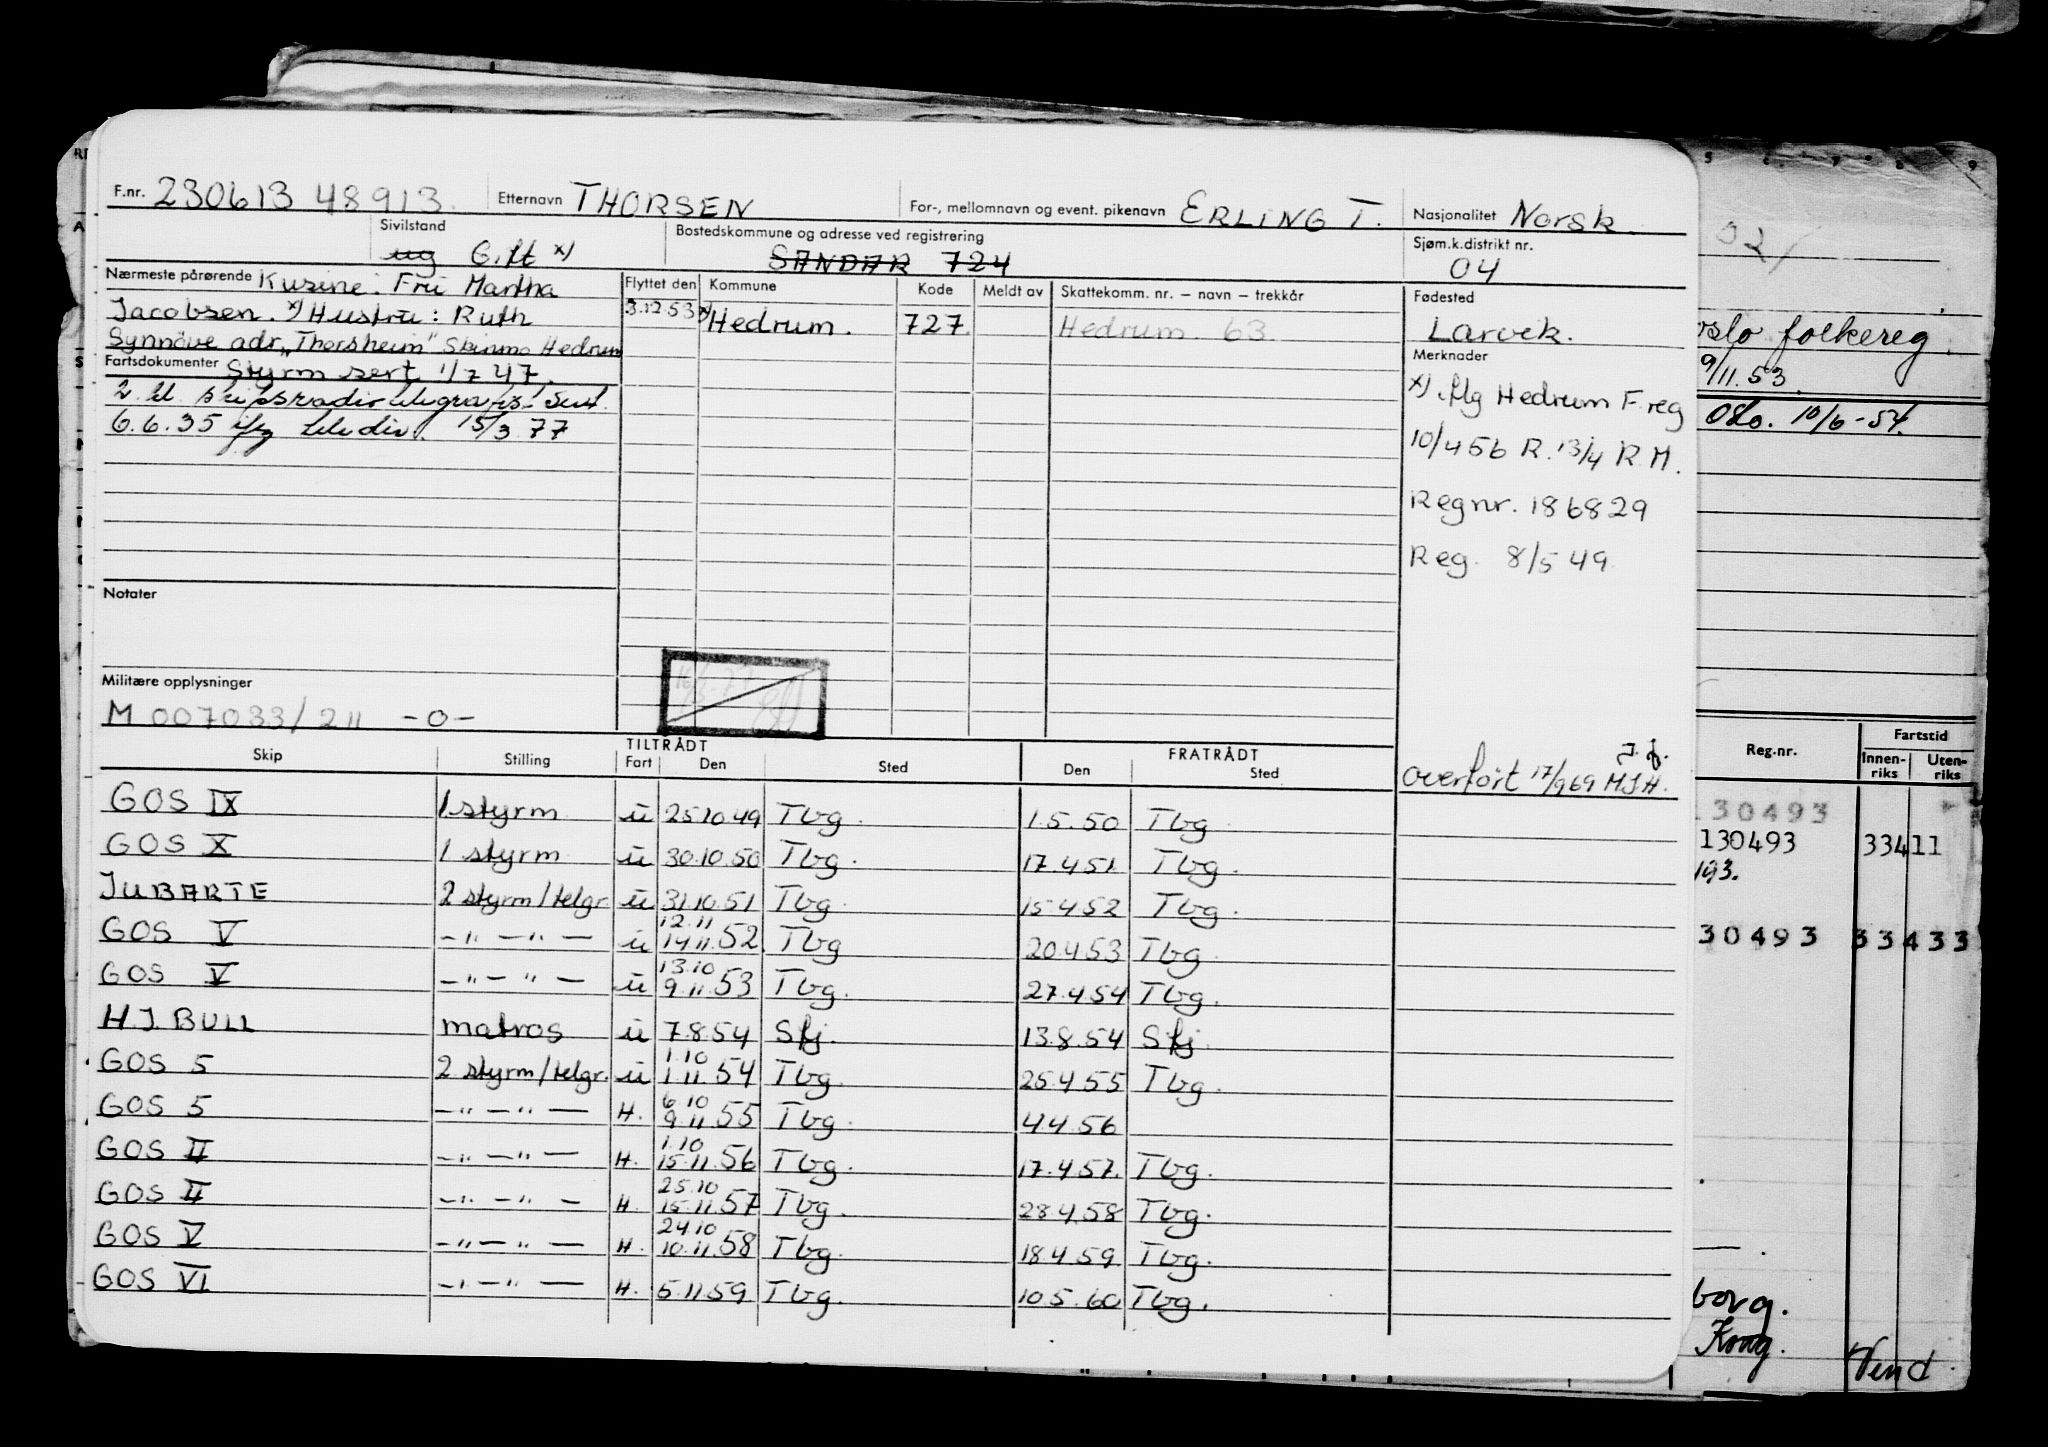 F.nr. 230613 48913. Etternavn THORSEN For-, mellomnavn og event. pikenavn ERLING T. Nasjonalitet Norsk
Sivilstand ug Gift x) Bostedskommune og adresse ved registrering SANDAR 724 Sjøm.k.distrikt nr. 04
Nærmeste pårørende Kusine: Fru Martha
Jacobsen. x) Hustru: Ruth
Synnöve adr. „Thorsheim" Hedrum
Flyttet den Kommune Kode Meldt av Skattekomm. nr. – navn – trekkår
3.12.53 Hedrum. 727 Hedrum 63
Fødested
Larvik.
Fartsdokumenter Styrm sert 1/7 47.
6.6.35 15/3 77
Merknader
x) iflg Hedrum F.reg
10/4 56 R. 13/4 R.M.
Regnr. 186829
Reg. 8/5 49
Notater
Militære opplysninger
M 007033/211 -0-
overført 17/9 69 M.J.H.
TILTRÅDT FRATRÅDT
Skip Stilling Fart Den Sted Den Sted
GOS IX 1 styrm u 25.10.49 Tbg. 1.5.50 Tbg
GOS X 1 styrm u 30.10.50 Tbg. 17.4.51 Tbg.
JUBARTE 2 styrm/telgr. u 31.10.51 Tbg. 15.4.52 Tbg.
GOS V –"–"– u 12.11 14.11.52 Tbg 20.4.53 Tbg.
GOS V –"–"– u 13.10 9.11.53 Tbg. 27.4.54 Tbg.
H.J. BULL matros u 7.8.54 Sfj. 13.8.54 Sfj.
GOS 5 2 styrm/telgr. u 1.10 1.11.54 Tbg. 25.4.55 Tbg.
GOS 5 –"–"– H. 6.10 9.11.55 Tbg. 4.4.56
GOS II –"–"– H. 1.10 15.11.56 Tbg. 17.4.57. Tbg.
GOS II –"–"– H. 25.10 15.11.57 Tbg. 28.4.58 Tbg.
GOS V –"–"– H. 24.10 10.11.58 Tbg. 18.4.59 Tbg.
GOS VI –"–"– H. 5.11.59 Tbg. 10.5.60 Tbg.
02/
folkereg.
9/11.53.
Oslo. 10/6-54.
Reg.nr. Fartstid
Innen-riks Uten-riks
130493
130493 33411
193.
30493 33433
borg.
Vend